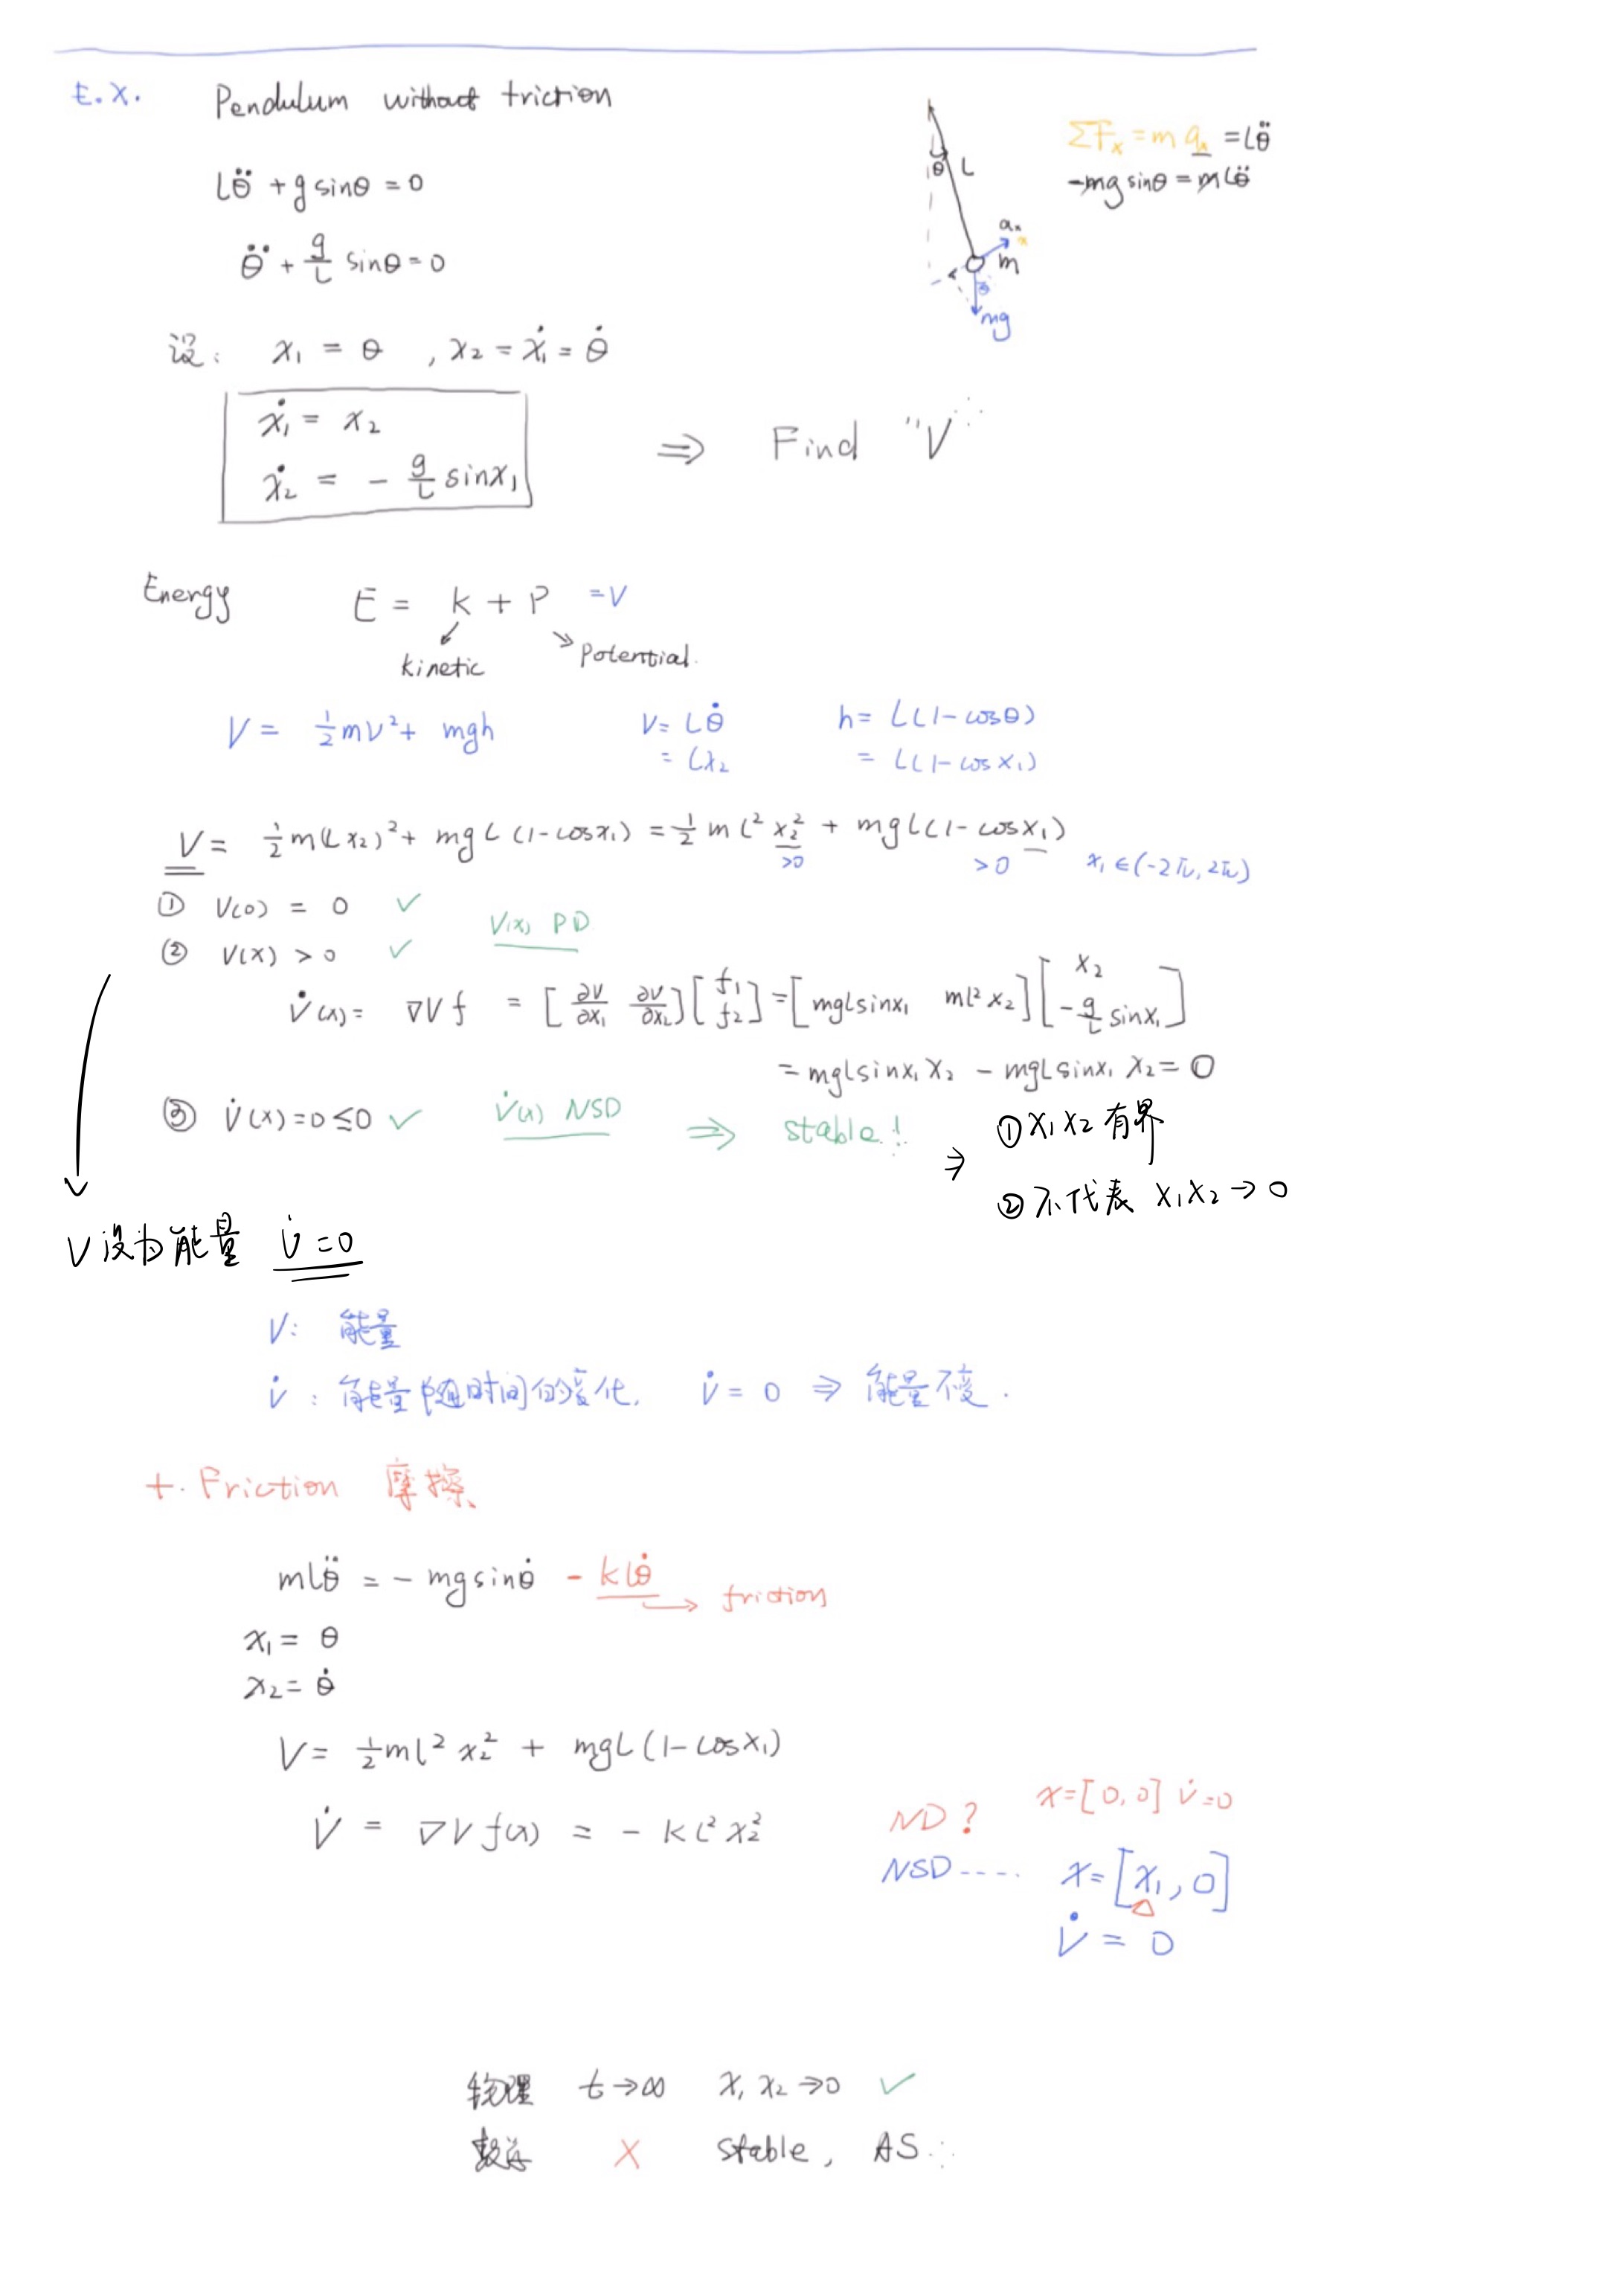 E.X. Pendulum without friction
Lθ̈ + g sinθ = 0
θ̈ + g/L sinθ = 0
θ L
aₓ x
m
θ
mg
ΣFₓ = m aₓ = Lθ̈
-mg sinθ = mLθ̈
设: x₁ = θ , x₂ = ẋ₁ = θ̇
ẋ₁ = x₂
ẋ₂ = - g/L sinx₁
⇒ Find "V"
Energy E = K + P = V
kinetic
potential.
V = ½mv² + mgh v = Lθ̇ h = L(1-cosθ)
= Lx₂ = L(1-cosx₁)
V = ½m(Lx₂)² + mgL(1-cosx₁) = ½mL²x₂² + mgL(1-cosx₁)
>0 >0 x₁∈(-2π, 2π)
① V(0) = 0 ✓
V(x) PD
② V(x) > 0 ✓
V̇(x) = ∇V f = [∂V/∂x₁ ∂V/∂x₂] [f₁ f₂] = [mgLsinx₁ mL²x₂] [x₂ -g/L sinx₁]
= mgLsinx₁x₂ - mgLsinx₁x₂ = 0
③ V̇(x)=0≤0 ✓ V̇(x) NSD ⇒ stable! ⇒
① x₁x₂ 有界
② 不代表 x₁x₂→0
V设为能量 V̇=0
V: 能量
V̇: 能量随时间的变化, V̇ = 0 ⇒ 能量不变.
+ Friction 摩擦
mLθ̈ = - mgsinθ̇ - kLθ̇ → friction
x₁ = θ
x₂ = θ̇
V = ½mL²x₂² + mgL(1-cosx₁)
V̇ = ∇V f(x) = - KL²x₂²
ND? x=[0,0] V̇=0
NSD---- x=[x₁,0]
V̇ = 0
物理 t→∞ x₁x₂→0 ✓
数学 X stable, AS